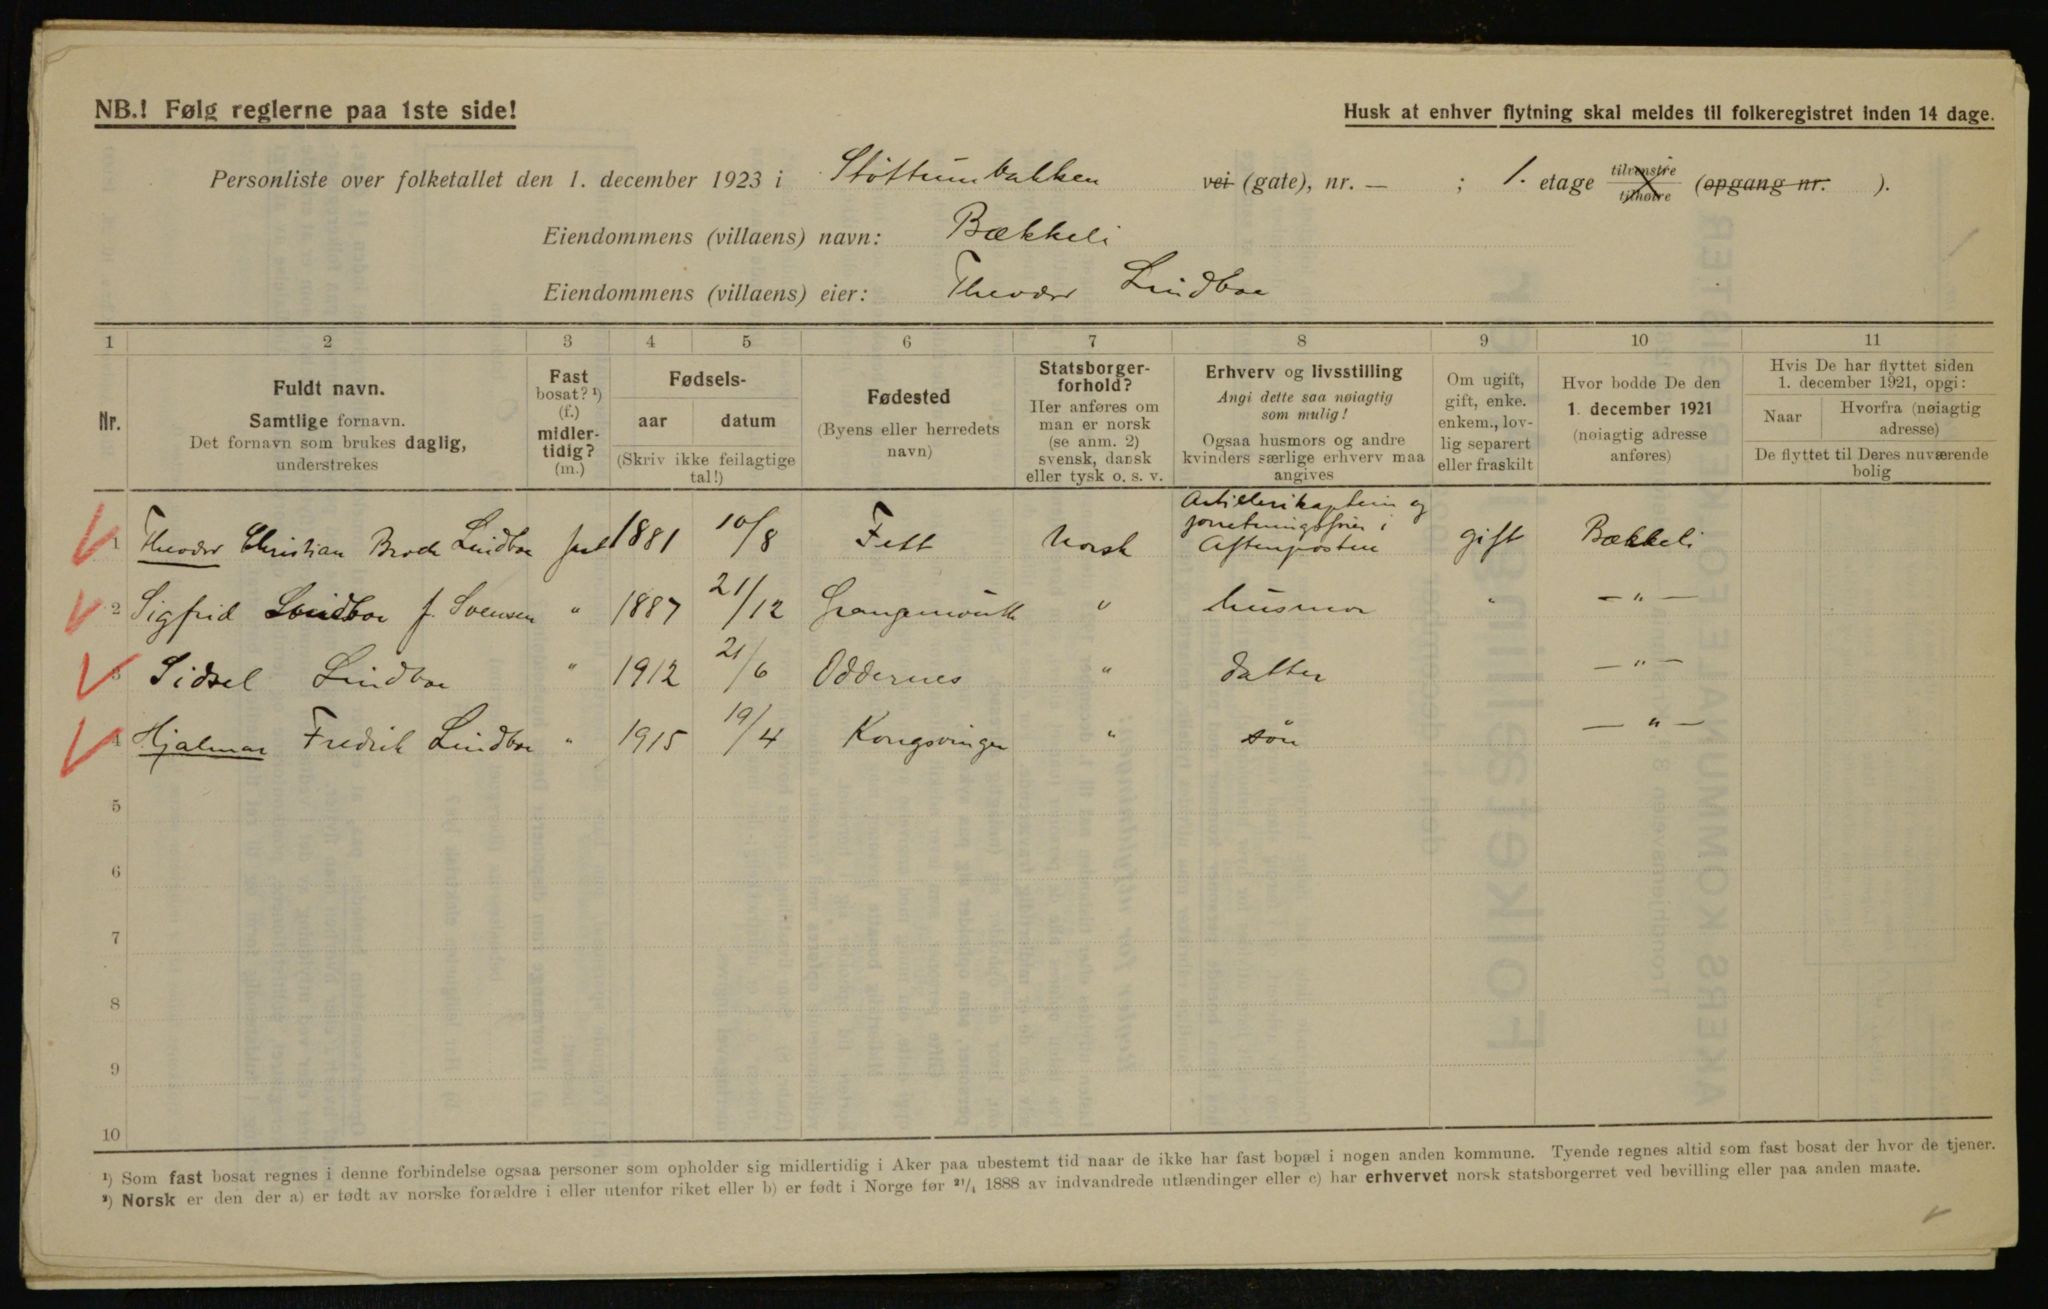 NB.! Følg reglerne paa 1ste side!
Husk at enhver flytning skal meldes til folkeregistret inden 14 dage.
Personliste over folketallet den 1. december 1923 i Støttumbakken vei (gate), nr. — ; 1. etage tilvenstre tilhøire (opgang nr. ).
Eiendommens (villaens) navn: Bækkeli
Eiendommens (villaens) eier: Theodor Lindboe
1 2 3 4 5 6 7 8 9 10 11
Nr.
Fuldt navn.
Samtlige fornavn.
Det fornavn som brukes daglig,
understrekes
Fast
bosat? ¹)
(f.)
midler-
tidig?
(m.)
Fødsels-
aar datum
(Skriv ikke feilagtige
tal!)
Fødested
(Byens eller herredets
navn)
Statsborger-
forhold?
Her anføres om
man er norsk
(se anm. 2)
svensk, dansk
eller tysk o. s. v.
Erhverv og livsstilling
Angi dette saa nøiagtig
som mulig!
Ogsaa husmors og andre
kvinders særlige erhverv maa
angives
Om ugift,
gift, enke.
enkem., lov-
lig separert
eller fraskilt
Hvor bodde De den
1. december 1921
(nøiagtig adresse
anføres)
Hvis De har flyttet siden
1. december 1921, opgi:
Naar Hvorfra (nøiagtig
adresse)
De flyttet til Deres nuværende
bolig
1 Theodor Christian Brock Lindboe fast 1881 10/8 Fett Norsk Artillerikaptein og
forretningsfører i
Aftenposten gift Bækkeli
2 Sigfrid Lindboe f. Svensen " 1887 21/12 Grangemouth " husmor " — " —
3 Sidsel Lindboe " 1912 21/6 Oddernes " datter — " —
4 Hjalmar Fredrik Lindboe " 1915 19/4 Kongsvinger " søn — " —
5
6
7
8
9
10
¹) Som fast bosat regnes i denne forbindelse ogsaa personer som opholder sig midlertidig i Aker paa ubestemt tid naar de ikke har fast bopæl i nogen anden kommune. Tyende regnes altid som fast bosat der hvor de tjener.
²) Norsk er den der a) er født av norske forældre i eller utenfor riket eller b) er født i Norge før ²¹/₄ 1888 av indvandrede utlændinger eller c) har erhvervet norsk statsborgerret ved bevilling eller paa anden maate.